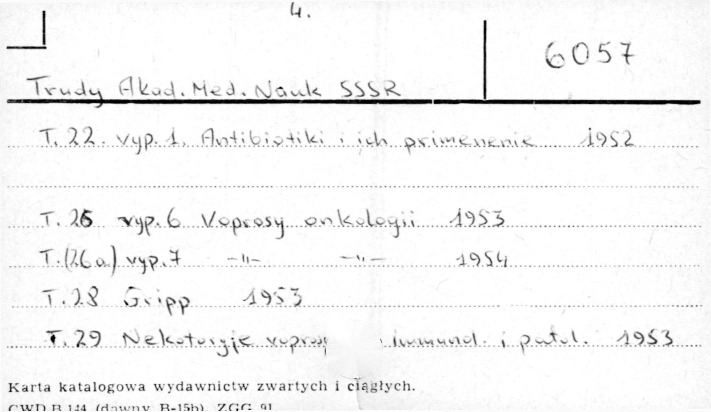 4.
6057
Trudy Akad. Med. Nauk SSSR
T. 22. vyp. 1. Antibiotiki i ich primenenie 1952
T. 26 vyp. 6 Voprosy onkologii 1953
T. (26a) vyp. 7 -"- -"- 1954
T. 28 Gripp 1953
T. 29 Nekotoryje voprosy immunol. i patol. 1953
Karta katalogowa wydawnictw zwartych i ciągłych.
CWD B 144 (dawny B-15b). ZGG 91